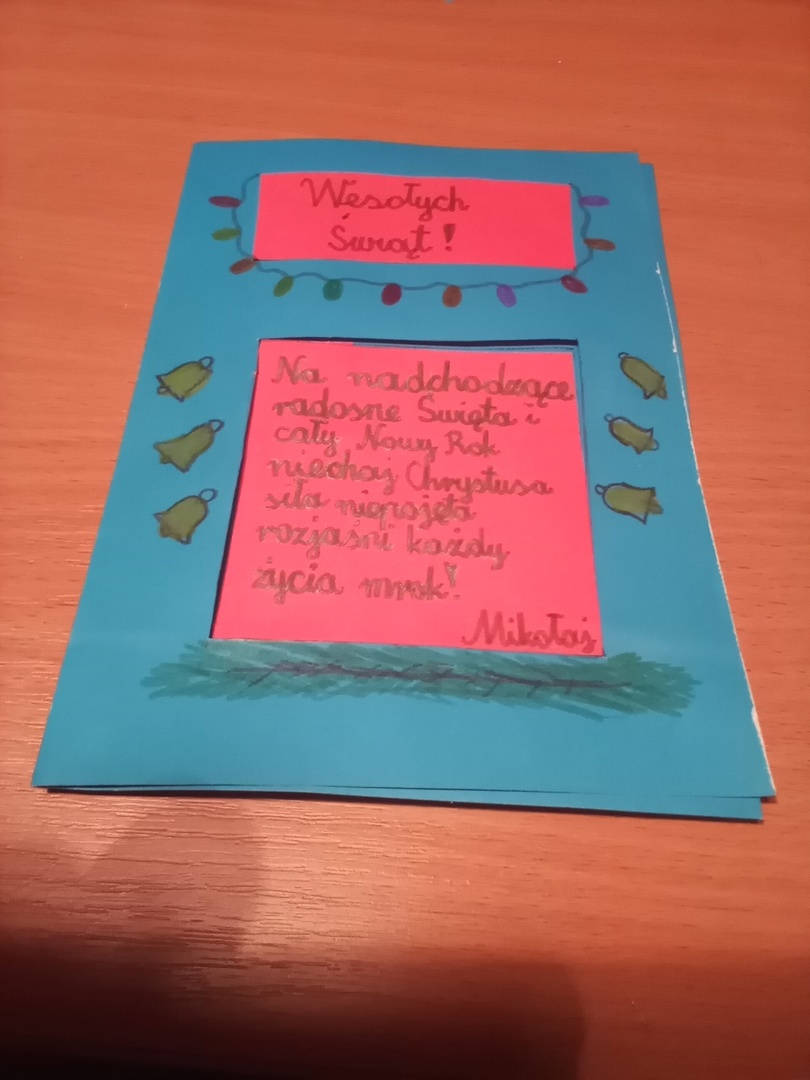 Wesołych
Świąt!
Na nadchodzące
radosne Święta i
cały Nowy Rok
niechaj Chrystusa
siła niepojęta
rozjaśni każdy
życia mrok!
Mikołaj